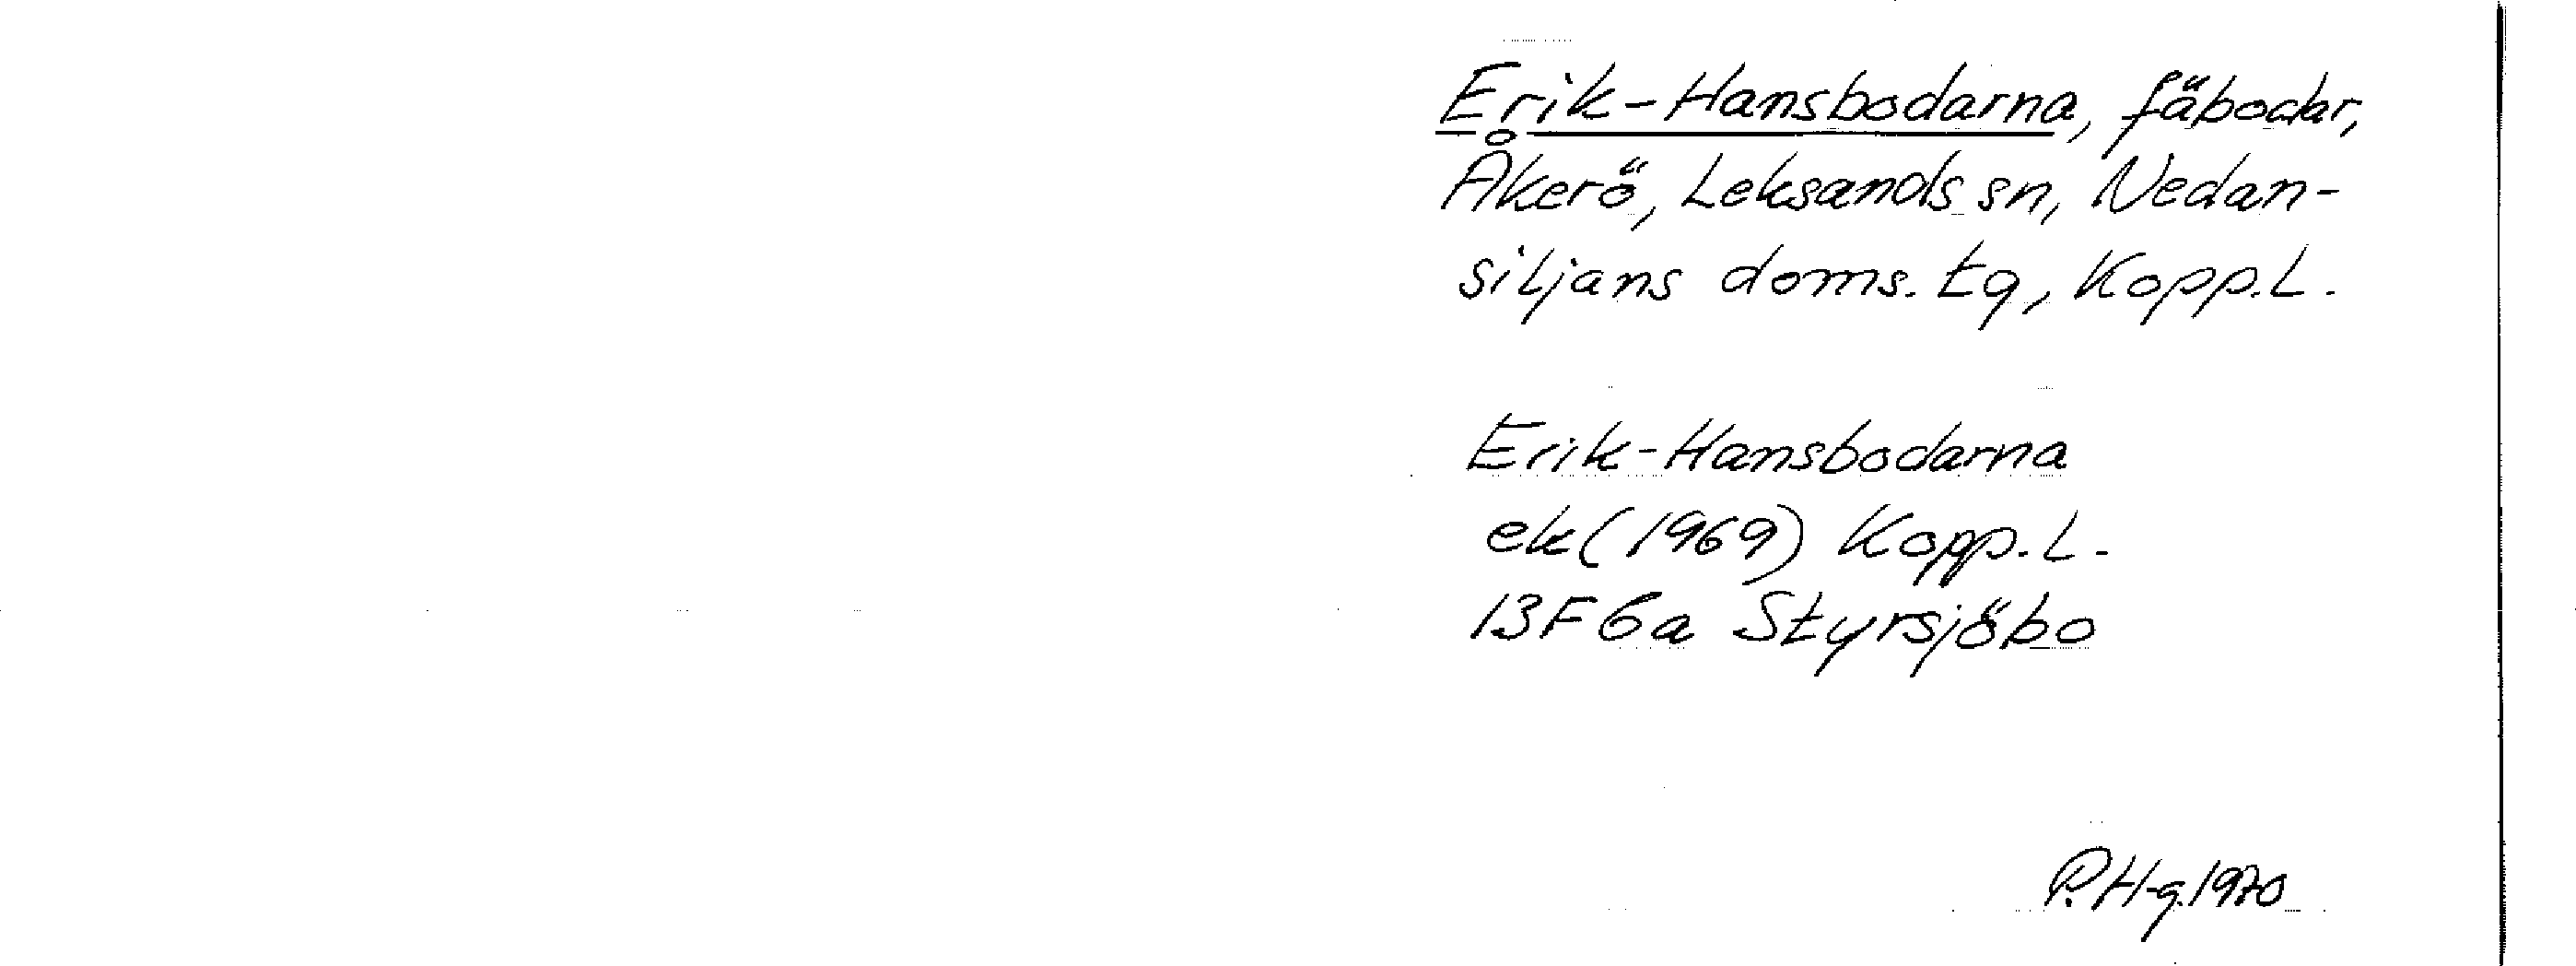 Erik-Hansbodarna, fäbodar,
Åkerö, Leksands sn, Nedan-
siljans doms. tg, Kopp.L.
Erik-Hansbodarna
ek (1969) Kopp.L.
13F 6a Styrsjöbo
P.H-g.1970